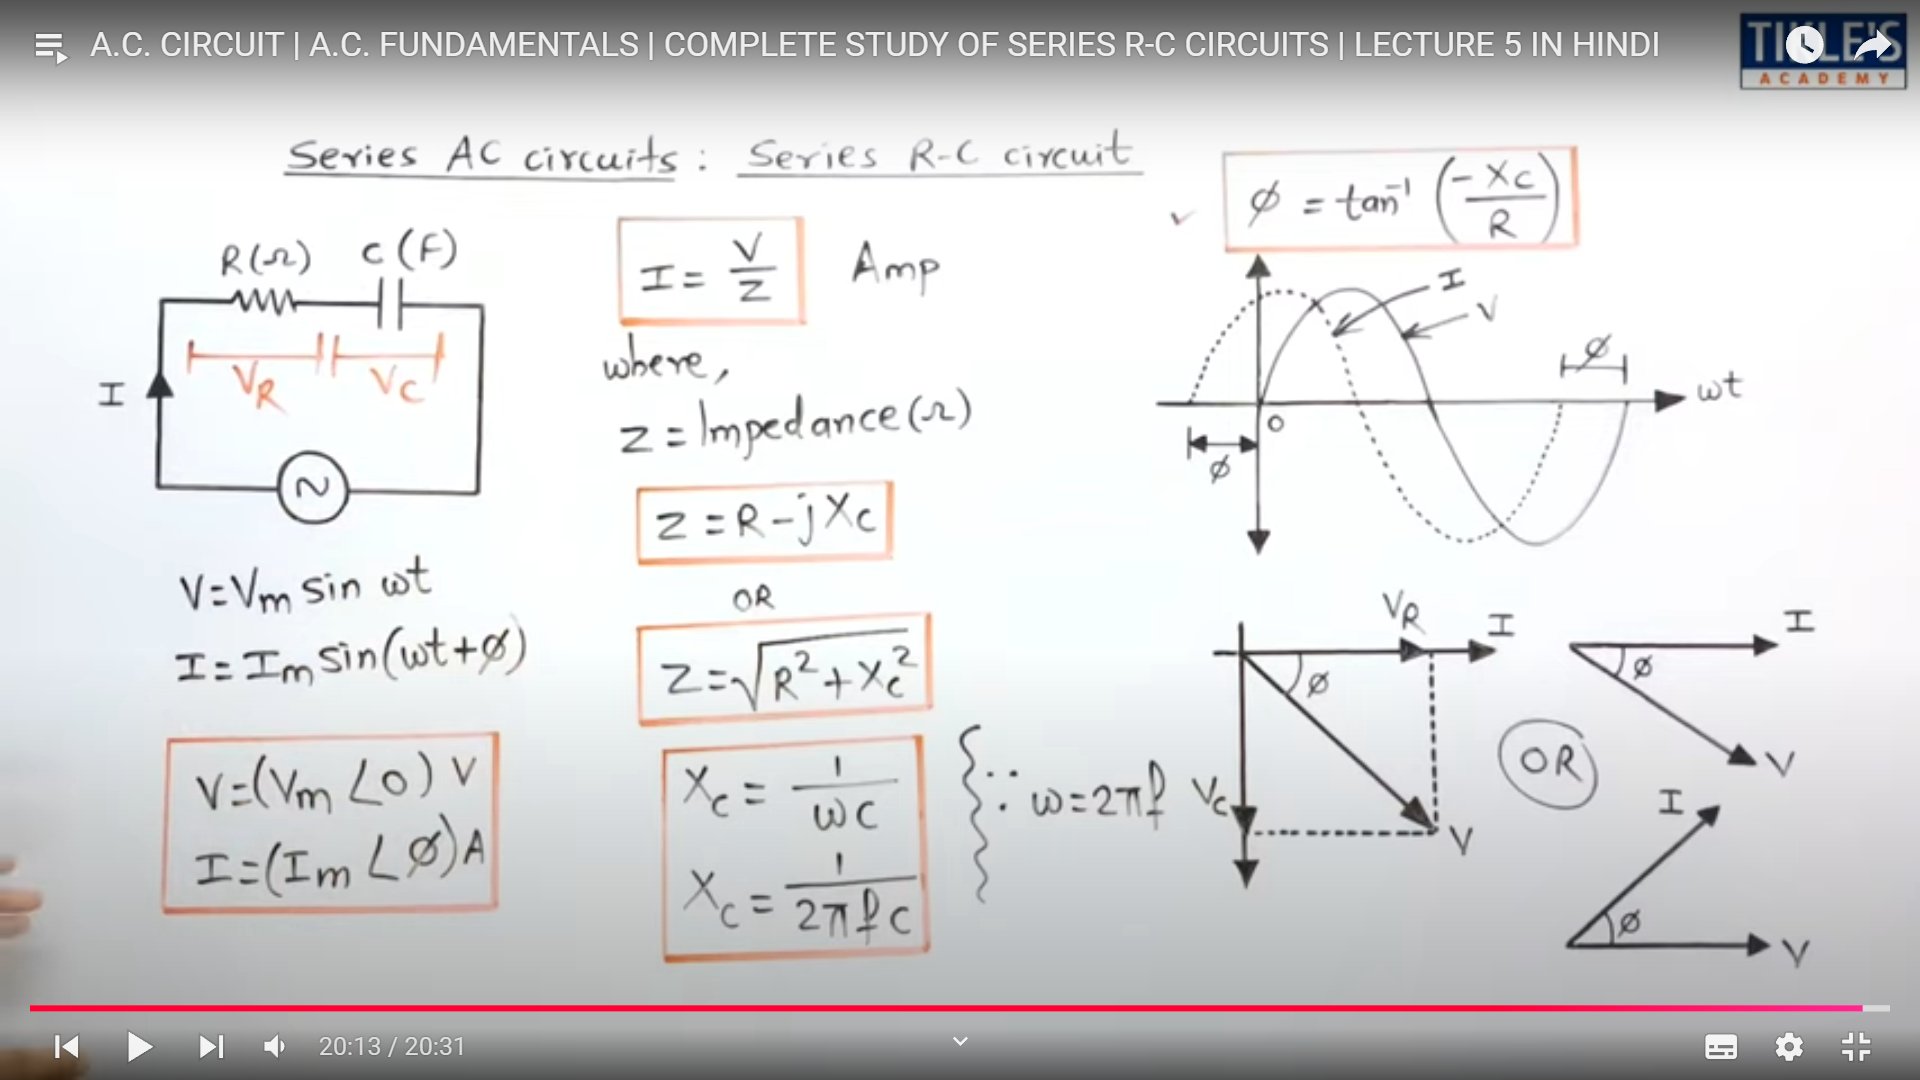 A.C. CIRCUIT | A.C. FUNDAMENTALS | COMPLETE STUDY OF SERIES R-C CIRCUITS | LECTURE 5 IN HINDI
ACADEMY
Series AC circuits : Series R-C circuit
R(Ω) C(F)
VR VC
I
V=Vm sin ωt
I=Im sin(ωt+ø)
V=(Vm ∠0) V
I=(Im ∠ø)A
I = V/Z Amp
where,
Z = Impedance(Ω)
Z = R-jXc
OR
Z=√R²+Xc²
Xc = 1/ωC
Xc = 1/2πfC
{∵ ω=2πf
✓ ø = tan⁻¹ (-Xc/R)
I
V
ø
ωt
0
ø
VR I
ø
Vc
V
I
ø
V
OR
I
ø
V
20:13 / 20:31